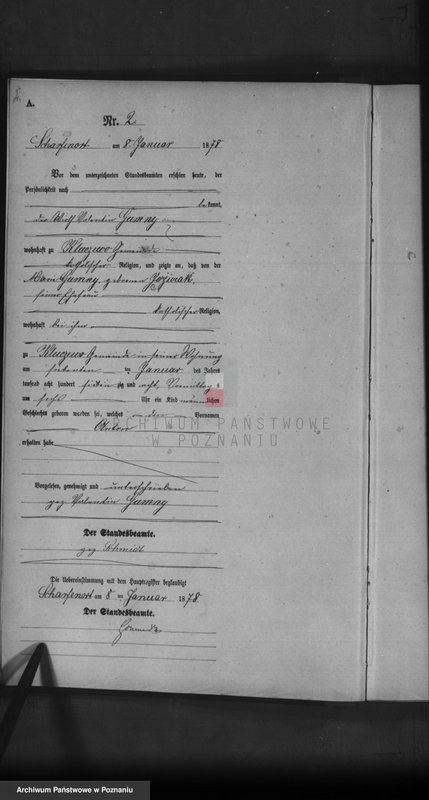 A.
Nr. 2.
Scharfenort am 8 Januar 1878
Vor dem unterzeichneten Standesbeamten erschien heute, der
Persönlichkeit nach
bekannt,
der Wirth Valentin Gumny
wohnhaft zu Kluczewo Gemeinde
katholischer Religion, und zeigte an, daß von der
Marie Gumny, geborene
seiner Ehefrau
katholischer Religion,
wohnhaft bei ihm
zu Kluczewo Gemeinde in seiner Wohnung
am siebenten ten Januar des Jahres
tausend acht hundert siebenzig und acht, Vormittag s
um sechs Uhr ein Kind männlichen
Geschlechts geboren worden sei, welches den Vornamen
Anton
erhalten habe
ARCHIWUM PAŃSTWOWE
W POZNANIU
Vorgelesen, genehmigt und unterschrieben
gez Valentin Gumny
Der Standesbeamte.
gez Schmidt
Die Uebereinstimmung mit dem Hauptregister beglaubigt
Scharfenort am 8 ten Januar 1878
Der Standesbeamte.
Archiwum Państwowe w Poznaniu